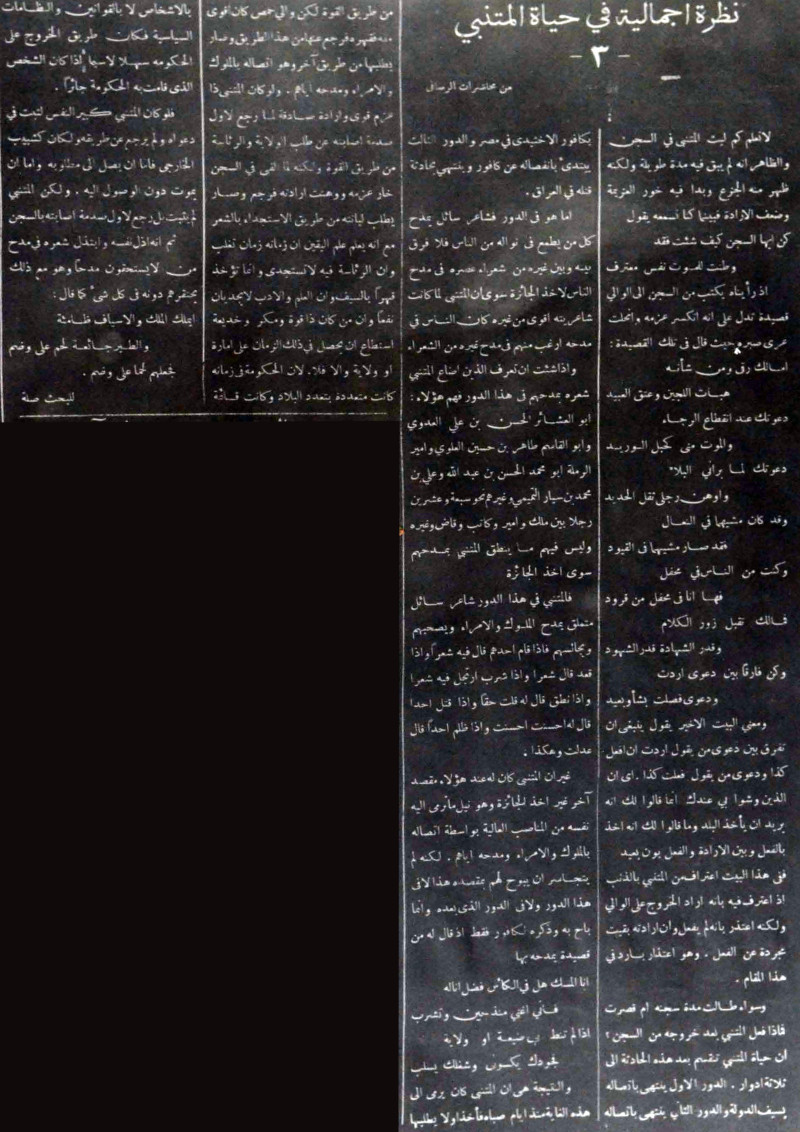 نظرة اجمالية في حياة المتنبي
- ٣ -
من محاضرات الرصافي
لانعلم كم لبث المتنبي في السجن
والظاهر انه لم يبق فيه مدة طويلة ولكنه
ظهر منه الجزع وبدا فيه خور العزيمة
وضعف الارادة فبينما كنا نسمعه يقول
كن ايها السجن كيف شئت فقد
وطنت للموت نفس معترف
اذ رأيناه يكتب من السجن الى الوالي
قصيدة تدل على انه انكسر عزمه وانحلت
عرى صبره حيث قال في تلك القصيدة :
امالك رقى ومن شأنه
هبات اللجين وعتق العبيد
دعوتك عند انقطاع الرجاء
والموت منى كحبل الوريد
دعوتك لما براني البلاء
واوهن رجلي ثقل الحديد
وقد كان مشيهما في النعال
فقد صار مشيهما في القيود
وكنت من الناس في محفل
فها انا في محفل من قرود
فمالك تقبل زور الكلام
وقدر الشهادة قدر الشهود
وكن فارقا بين دعوى اردت
ودعوى فعلت بشأو بعيد
ومعنى البيت الاخير يقول ينبغي ان
تفرق بين دعوى من يقول اردت ان افعل
كذا ودعوى من يقول فعلت كذا . اى ان
الذين وشوا بي عندك انما قالوا لك انه
يريد ان يأخذ البلد وما قالوا لك انه اخذ
بالفعل وبين الارادة والفعل بون بعيد
ففي هذا البيت اعتراف من المتنبي بالذنب
اذ اعترف فيه بانه اراد الخروج على الوالي
ولكنه اعتذر بانه لم يفعل وان ارادته بقيت
مجردة عن الفعل . وهو اعتذار بارد في
هذا المقام .
وسواء طالت مدة سجنه ام قصرت
فاذا فعل المتنبي بعد خروجه من السجن ؟
ان حياة المتنبي تنقسم بعد هذه الحادثة الى
ثلاثة ادوار . الدور الاول ينتهي باتصاله
بسيف الدولة والدور الثاني ينتهي باتصاله
بكافور الاخشيدي في مصر والدور الثالث
يبتدئ بانفصاله عن كافور وينتهي بحادثة
قتله في العراق .
اما هو في الدور فشاعر سائل يمدح
كل من يطمع في نواله من الناس فلا فرق
بينه وبين غيره من شعراء عصره في مدح
الناس لاخذ الجائزة سوى ان المتنبي لما كانت
شاعريته اقوى من غيره كان الناس في
مدحه ارغب منهم في مدح غيره من الشعراء
واذا شئت ان تعرف الذين اضاع المتنبي
شعره بمدحهم في هذا الدور فهم هؤلاء :
ابو العشائر الحسن بن علي العدوي
وابو القاسم طاهر بن حسين العلوي وامير
الرملة ابو محمد الحسن بن عبد الله وعلي بن
محمد بن سيار التميمي وغيرهم نحو سبعة وعشرين
رجلا بين ملك وامير وكاتب وقاض وغيره
وليس فيهم ما ينطق المتنبي بمدحهم
سوى اخذ الجائزة
فالمتنبي في هذا الدور شاعر سائل
متعلق بمدح الملوك والامراء ويصحبهم
ويجالسهم فاذا قام احدهم قال فيه شعراً واذا
قعد قال شعرا واذا شرب ارتجل فيه شعرا
واذا نطق قال له قلت حقا واذا قتل احدا
قال له احسنت احسنت واذا ظلم احداً قال
عدلت وهكذا .
غير ان المتنبي كان له عند هؤلاء مقصد
آخر غير اخذ الجائزة وهو نيل ما ترمى اليه
نفسه من المناصب العالية بواسطة اتصاله
بالملوك والامراء ومدحه اياهم . لكنه لم
يتجاسر ان يبوح لهم بمقصده هذا لا في
هذا الدور ولا في الدور الذى بعده وانما
باح به وذكره لكافور فقط اذ قال له من
قصيدة يمدحه بها
ابا المسك هل في الكأس فضل اناله
فأني اغني منذ حين وتشرب
اذا لم تنط بي ضيعة او ولاية
فجودك يكسوني وشغلك يسلب
والنتيجة هي ان المتنبي كان يرى الى
هذه الغاية منذ ايام صباه فأخذ اولا يطلبها
من طريق القوة لكن والي حمص كان اقوى
منه فقهره فرجع عنها من هذا الطريق وصار
يطلبها من طريق آخر وهو اتصاله بالملوك
والامراء ومدحه اياهم . ولو كان المتنبي ذا
عزم قوى وارادة صادقة لما رجع لاول
صدمة اصابته عن طلب الولاية والرئاسة
من طريق القوة ولكنه لما القى في السجن
خار عزمه ووهنت ارادته فرجع وصار
يطلب لبانته من طريق الاستجداء بالشعر
مع انه يعلم علم اليقين ان زمانه زمان تغلب
وان الرئاسة فيه لا تستجدى وانما تؤخذ
قهراً بالسيف وان العلم والادب لا يجديان
نفعا وان من كان ذا قوة ومكر وخديعة
استطاع ان يحصل في ذلك الزمان على امارة
او ولاية والا فلا . لان الحكومة في زمانه
كانت متعددة بتعدد البلاد وكانت قائمة
بالاشخاص لا بالقوانين والنظامات
السياسية فكان طريق الخروج على
الحكومه سهلا لاسيما اذا كان الشخص
الذى قامت به الحكومة جائراً .
فلو كان المتنبي كبير النفس لثبت في
دعواه ولم يرجع عن طريقه ولكان كشبيب
الخارجي فاما ان يصل الى مطلوبه واما ان
يموت دون الوصول اليه . ولكن المتنبي
لم يثبت بل رجع لاول صدمة اصابته بالسجن
ثم انه اذل نفسه وابتذل شعره في مدح
من لا يستحقون مدحاً وهو مع ذلك
يحتقرهم دونه في كل شئ كما قال :
ايملك الملك والاسياف ظامئة
والطير جائعة لحم على وضم
فجعلهم لحما على وضم .
للبحث صلة